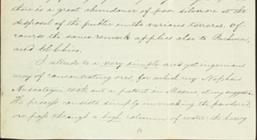 there is a great abundance of poor silver ore at the
disposal of the public on the various terrers. Of
course the same remark applies also to Buchanan,
and Robbins.
I allude to a very simple and yet ingenious
way of concentrating ore, for which my Nephew
took out a patent in Mexico, at my suggestion
His process consists simply in making the powdered
ore pass through a high column of water the heavy